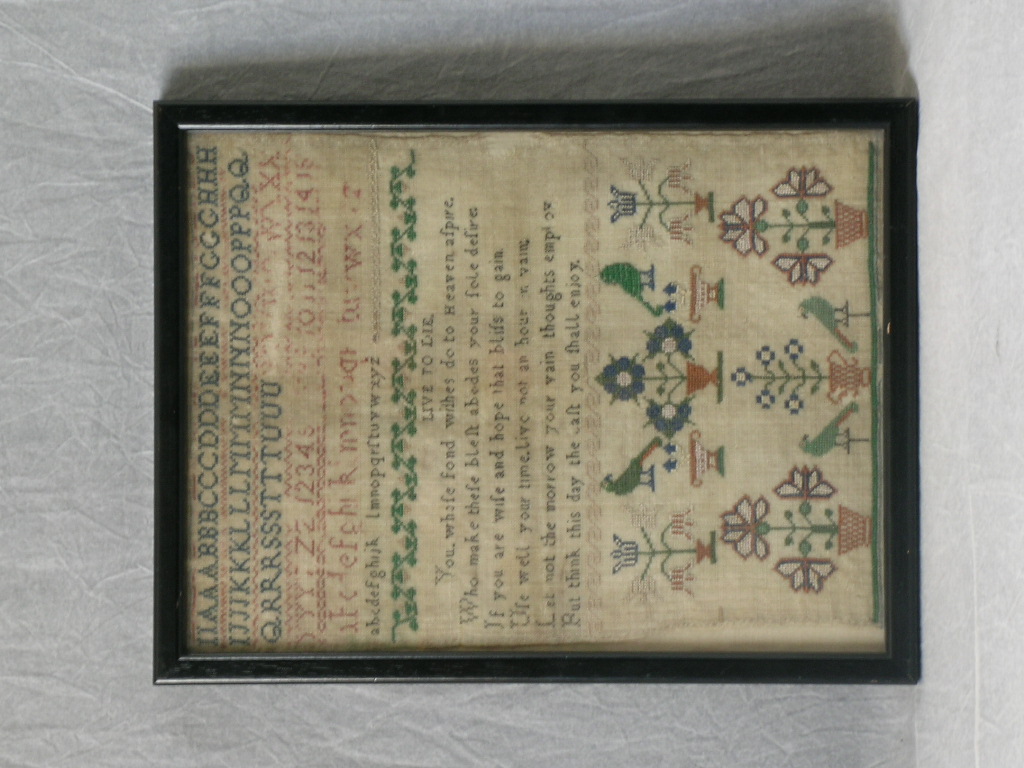 IIAAABBBCCCDDDEEEFFFGGGHHH
JJJJKKKLLLMMMNNNOOOPPPQQ
QRRRSSSTTTUUU
WXX
YYZZ 12345 10 11 12 13 14 15
tuvwx
abcdefghijk lmnopqrſtuvwxyz
LIVE TO DIE.
You, whose fond wiſhes do to Heaven aſpire,
Who make theſe bleſt abodes your ſole deſire:
If you are wiſe and hope that bliſs to gain
Uſe well your time, live not an hour in vain;
Let not the morrow your vain thoughts employ
But think this day the laſt you ſhall enjoy.